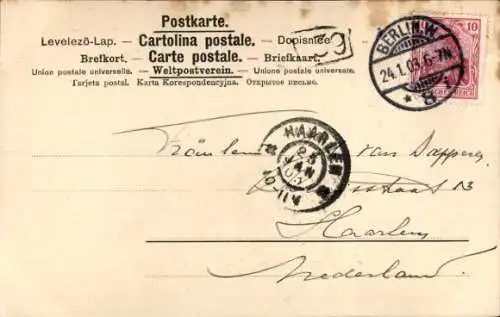 Postkarte.
Levelezö-Lap. — Cartolina postale. — Dopisnice
Brefkort. — Carte postale. — Briefkaart.
Union postale universelle. — Weltpostverein. — Unione postale universale.
Tarjeta postal. Karta Korespondencyjna. Открытое письмо.
10
BERLIN.W.
24.1.03.6-7N.
* 8
HAARLEM
25
JAN
03
10-11V
Fräulein van Dapperen
13
Haarlem
Nederland.